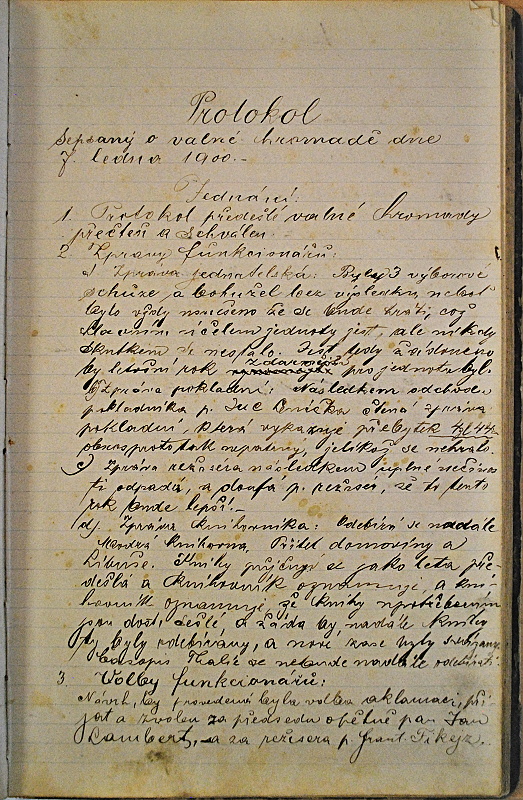 Protokol
Sepsaný o valné hromadě dne
7. ledna 1900.-
Jednání:
1. Protokol předešlé valné hromady
přečten a schválen.
2. Zprávy funkcionářů:
a) Zpráva jednatelská: Byly 3 výborové
schůze, a bohužel bez výsledku, neboť
bylo vždy usnešeno že se bude hráti, což
hlavním účelem jednoty jest, ale nikdy
skutkem se nestalo. Jest tedy žádoucno
by letošní rok zdárnější pro jednotu byl.
b) Zpráva pokladní: Následkem odchodu
pokladníka p. čtená zpráva
pokladní, která vykazuje přebytek
obnos proto tak nepatrný, jelikož se nehrálo.
c) Zpráva režisera následkem úplné nečinnos
ti odpadá, a doufá p. režisér, že to tento
rok bude lepší.-
d). Zpráva knihovníka: Odebírá se nadále
Modrá knihovna, Přítel domoviny a
Libuše. Knihy půjčují se jako léta pře-
dešlá a knihovník oznamuje, a kni-
hovník oznamuje, že knihy upotřebováním
jsou dosti sešlé, a žádá by nadále knihy
ty byly odebírány, a nové zase byly
Časopis Thalie se nebude nadále odebírati.
3. Volby funkcionářů:
Návrh, by provedena byla volba aklamací, při-
jat a zvolen za předsedu opětně pan Jan
Lambert, a za režisera p. Frant. Fikejz.